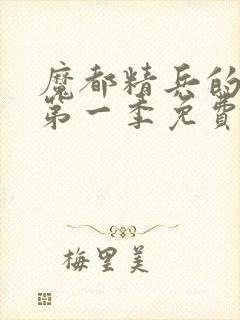 魔都精兵的
第一季免費
梅里美